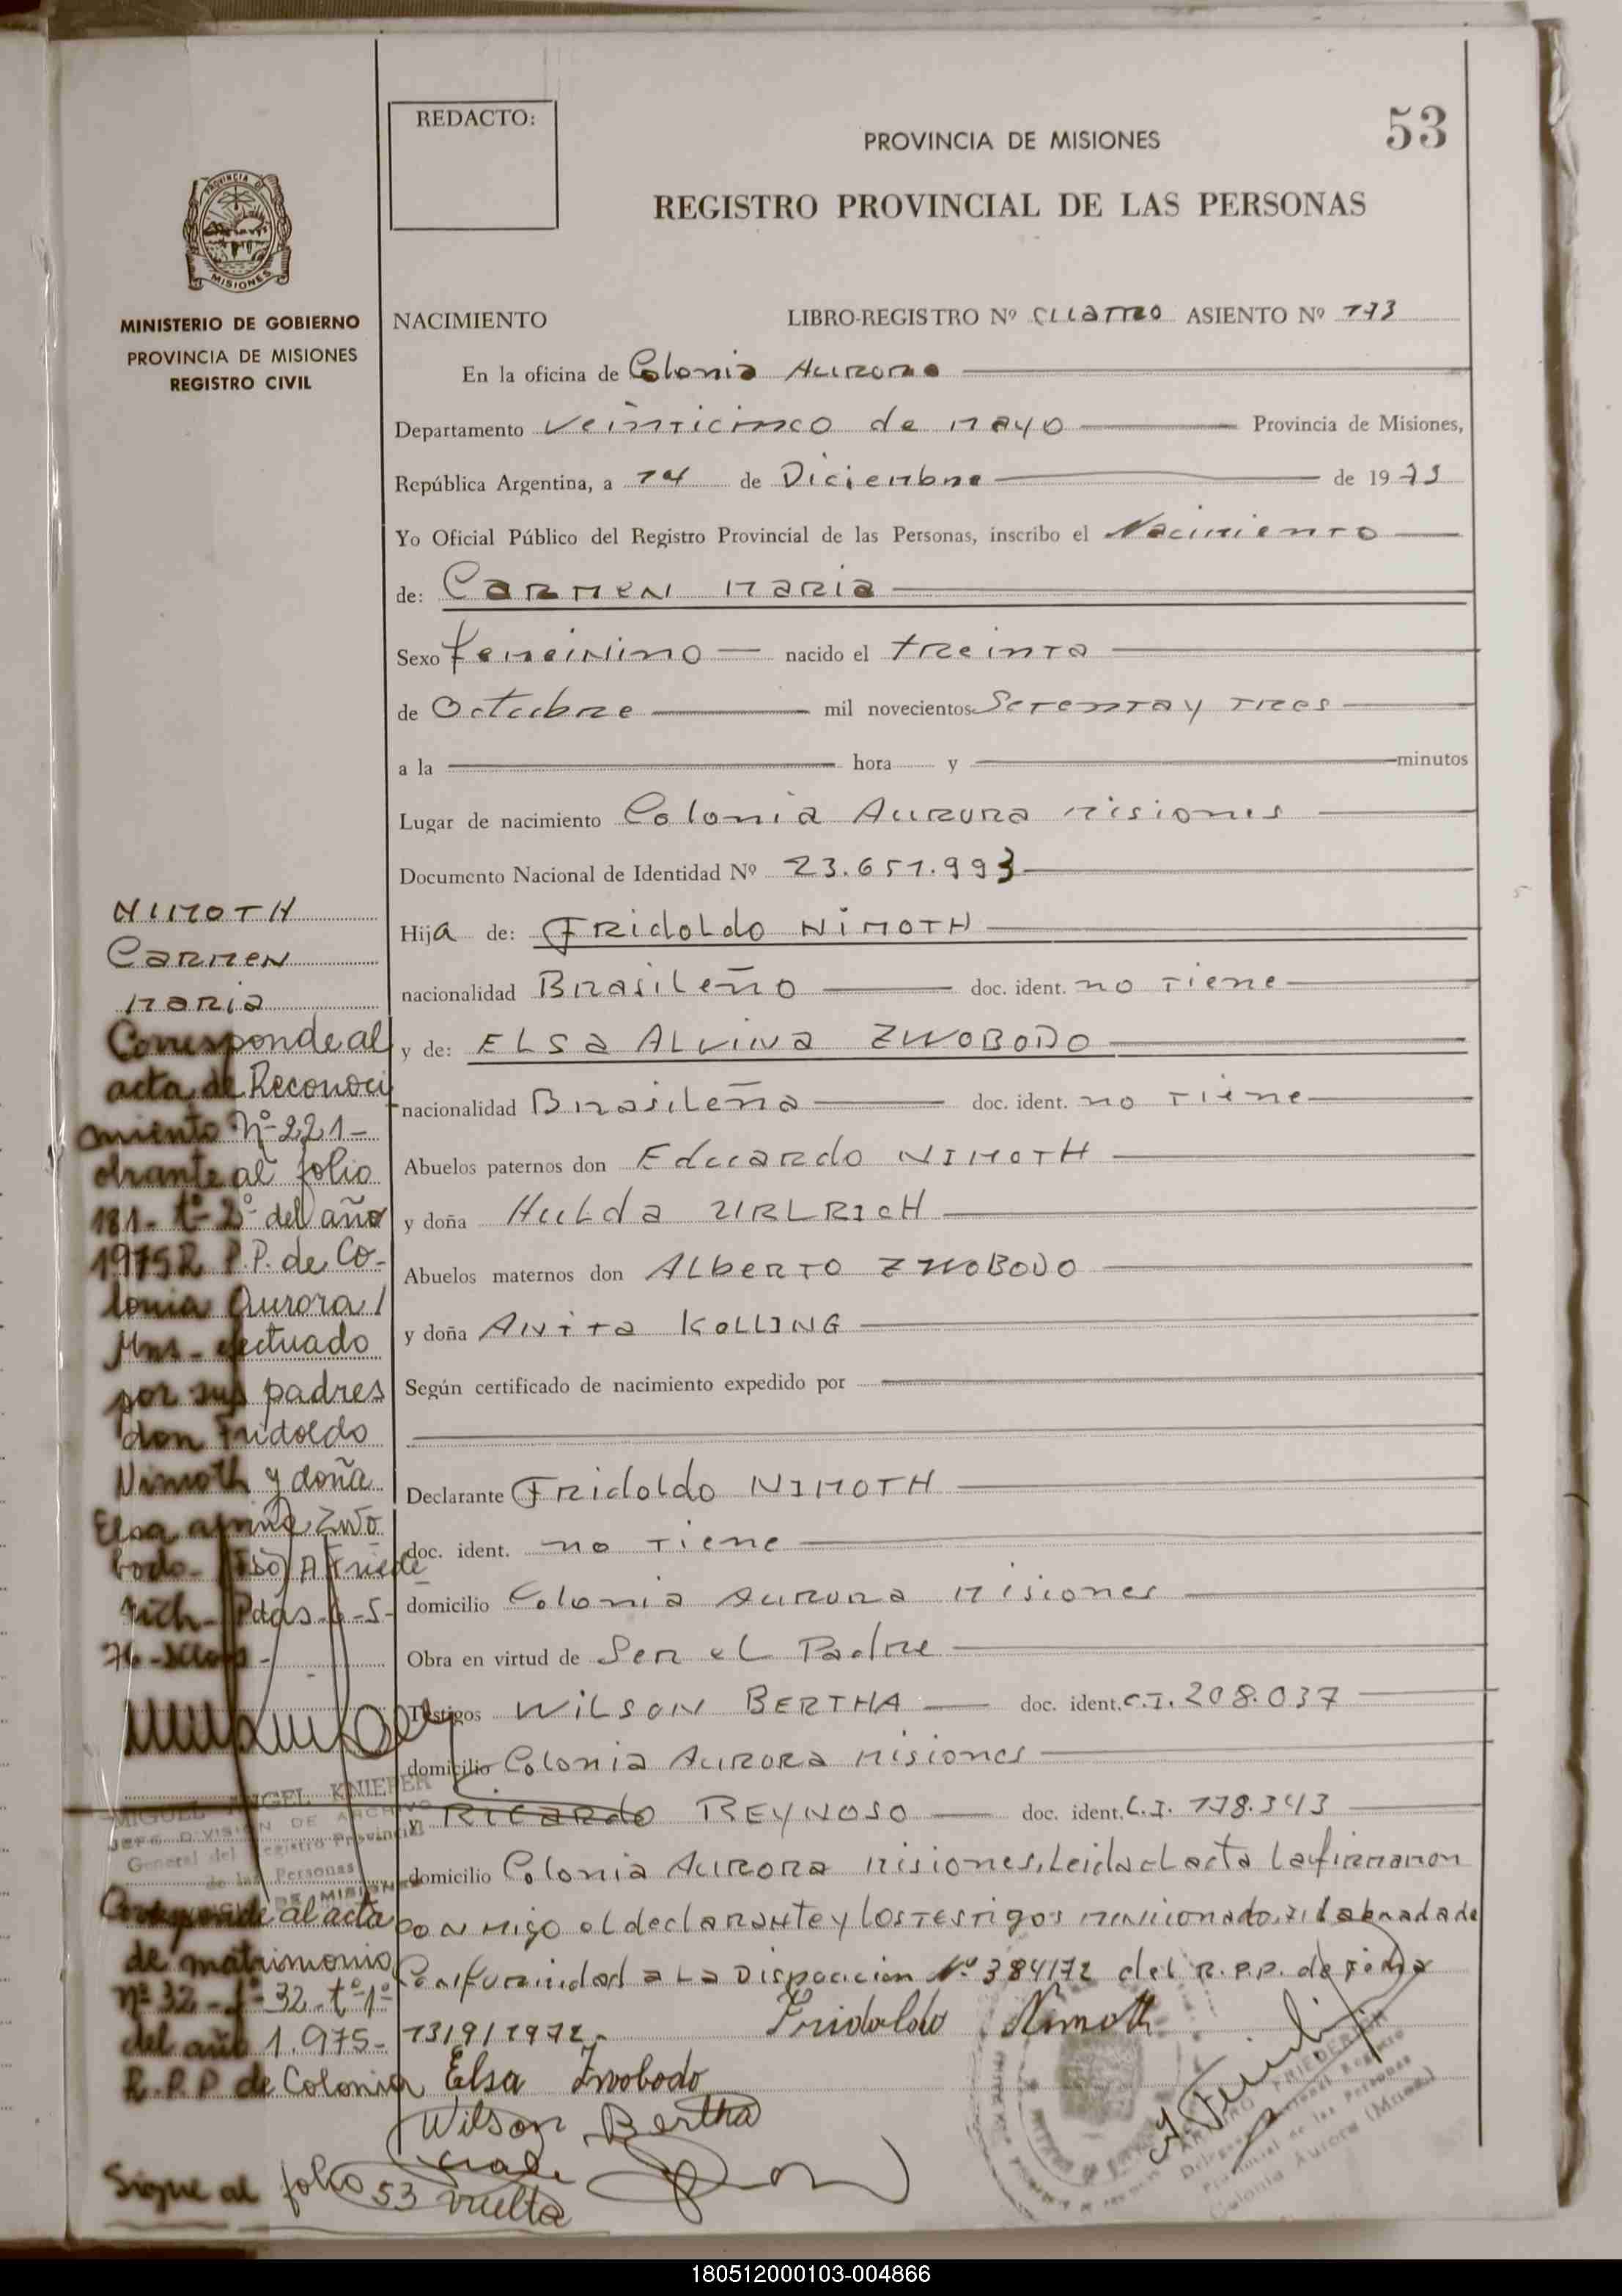 REDACTO:
53
PROVINCIA DE MISIONES
REGISTRO PROVINCIAL DE LAS PERSONAS
PROVINCIA DE
MISIONES
MINISTERIO DE GOBIERNO
PROVINCIA DE MISIONES
REGISTRO CIVIL
NACIMIENTO LIBRO-REGISTRO Nº cuatro ASIENTO Nº 173
En la oficina de Colonia Aurora
Departamento veinticinco de mayo Provincia de Misiones,
República Argentina, a 14 de Diciembre de 1973
Yo Oficial Público del Registro Provincial de las Personas, inscribo el Nacimiento
de: Carmen Maria
Sexo femeinino nacido el treinta
de Octubre mil novecientos Setenta y tres
a la hora y minutos
Lugar de nacimiento Colonia Aurora Misiones
Documento Nacional de Identidad Nº 23.651.993
Hija de: Fridoldo NIMOTH
nacionalidad Brasileño doc. ident. no tiene
y de: ELSa ALvina ZWOBODO
nacionalidad Brasileña doc. ident. no tiene
Abuelos paternos don Eduardo NIMOTH
y doña Hulda URLRICH
Abuelos maternos don Alberto ZWOBODO
y doña Anita KOLLING
Según certificado de nacimiento expedido por
Declarante Fridoldo NIMOTH
doc. ident. no tiene
domicilio Colonia Aurora Misiones
Obra en virtud de Ser el Padre
Testigos WILSON BERTHA doc. ident. C.I. 208.037
domicilio Colonia Aurora Misiones
y Ricardo REYNOSO doc. ident. C.I. 178.343
domicilio Colonia Aurora Misiones. Leida el acta la firmaron
conmigo el declarante y los testigos mencionados labrada de
Conformidad a La Disposicion Nº 384/72 del R.P.P. de fecha
13/9/1972.
Fridoldo Nimoth
Elsa Zwobodo
Wilson Bertha
NIMOTH
Carmen
Maria
Corresponde al
acta de Reconoci
miento Nº 221-
obrante al folio
181- tº 2º del año
1975 R.P.P. de Co-
lonia Aurora /
Mns - efectuado
por sus padres
don Fridoldo
Nimoth y doña
Elsa Zwo
bodo- Fdo) A Friede
rich- Pdas-6-5-
76-
MIGUEL ANGEL KNIEPER
JEFE DIVISION DE ARCHIVO
General del Registro Provincial
de las Personas
DE MISIONES
Corresponde al acta
de matrimonio
nº 32 - fº 32 - tº 1º
del año 1.975-
R.P.P de Colonia
Sigue al folio 53 vuelta
ARTURO FRIEDERICH
Delegado Seccional Registro
Provincial de las Personas
Colonia Aurora (Mnes.)
180512000103-004866